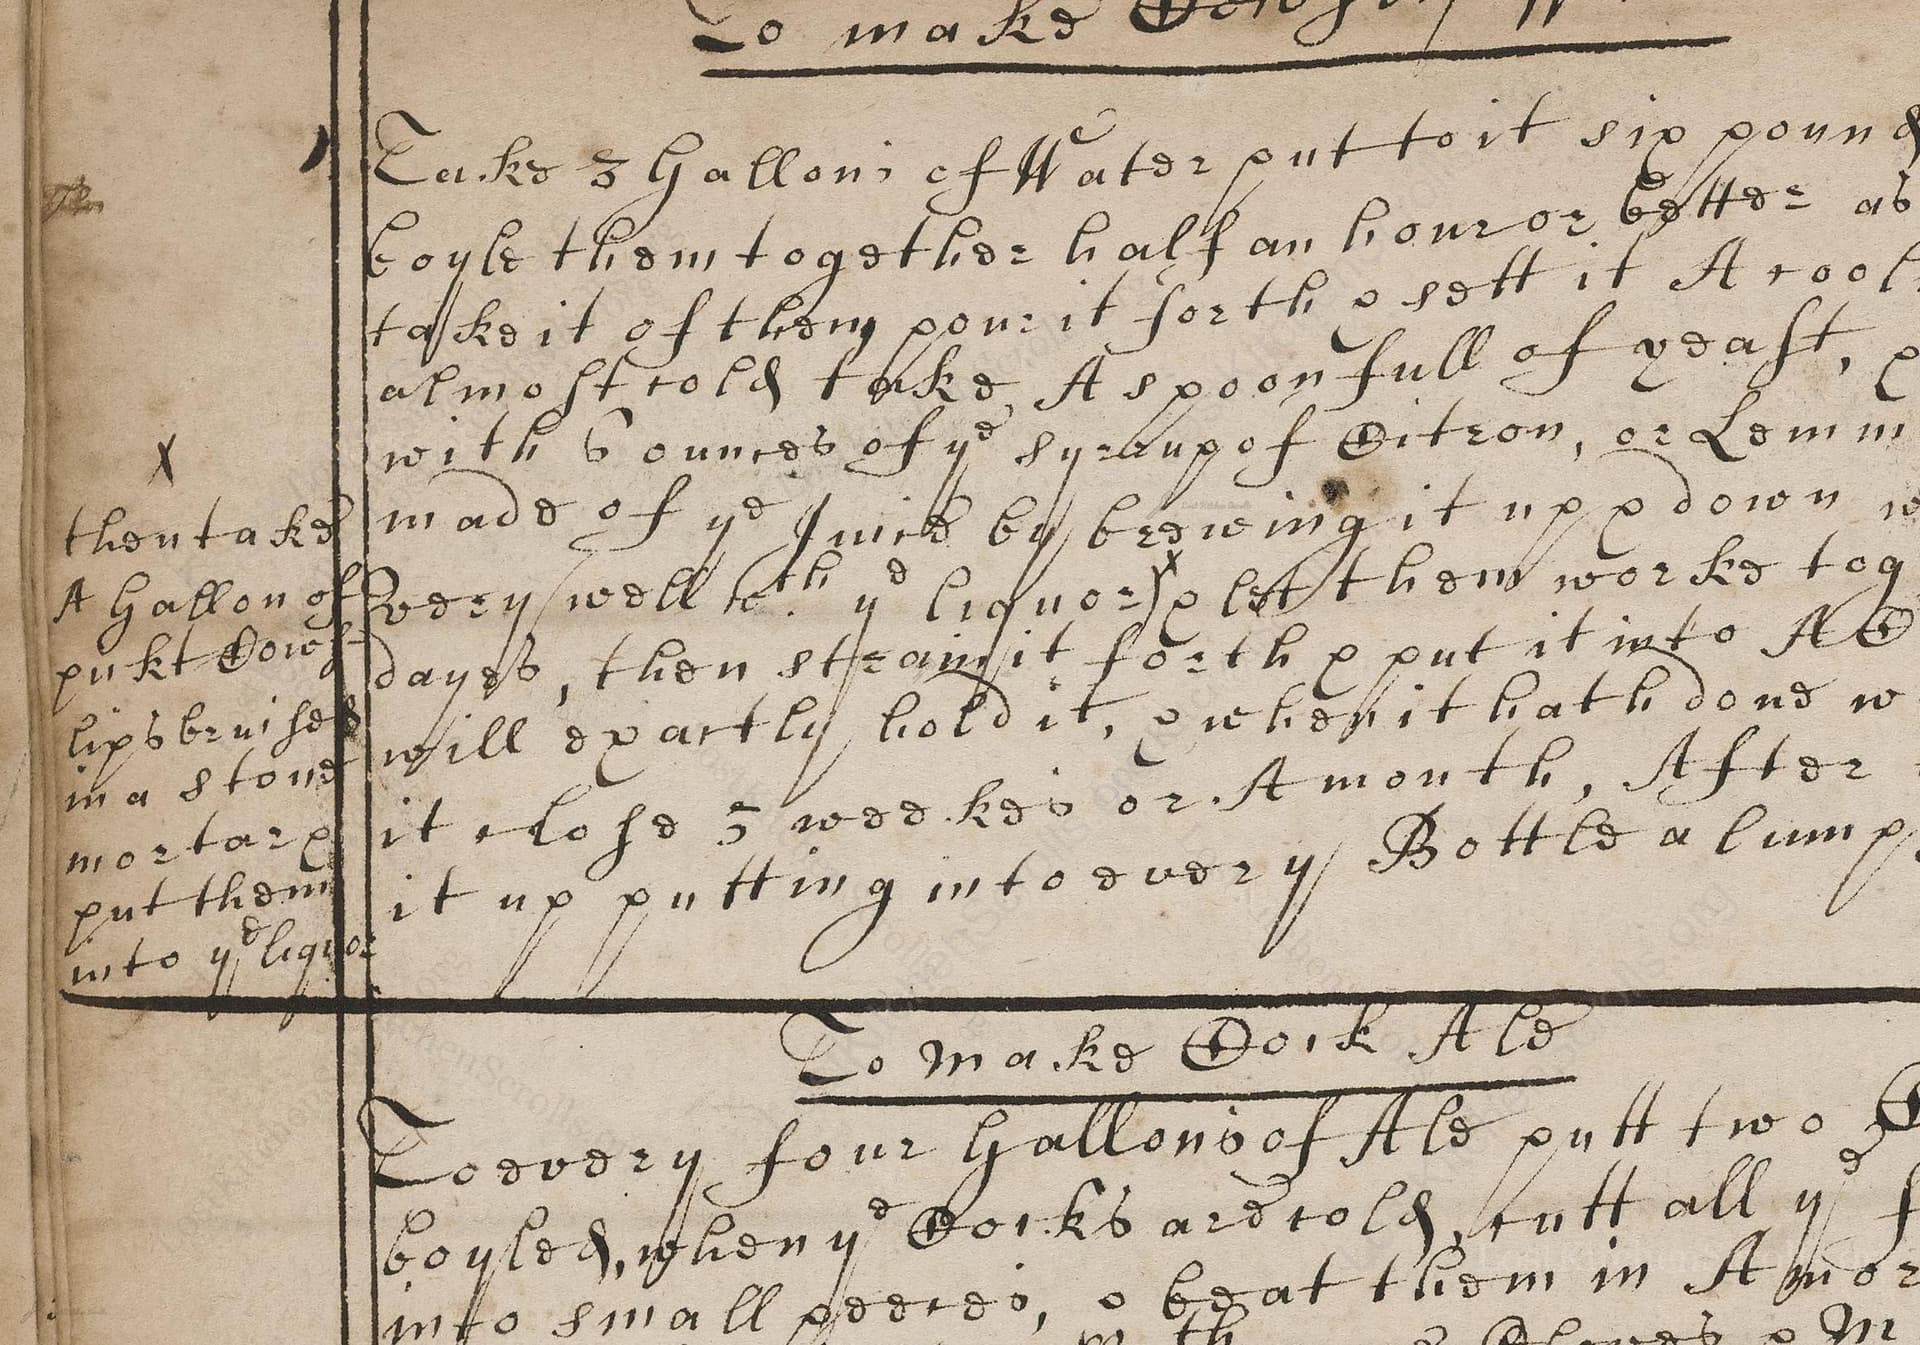 To make Cowslip
Take 3 Gallons of Water put to it six pound
boyle them together half an hour or better as
take it of them pour it forth & sett it A cool
almost cold take A spoonfull of yeast, &
with 6 ounces of yᵉ syrrup of Citron, or Lemm
made of yᵉ Juice by brewing it up & down w
very well wᵗʰ yᵉ liquor x & let them worke tog
dayes, then strain it forth & put it into A C
will exactly hold it, & when it hath done w
it close 3 weekes or A month, After
it up putting into every Bottle a lump
x
then take
A Gallon of
pukt Cows
lips bruised
in a stone
mortar &
put them
into yᵉ liquor
To make Cock Ale
To every four Gallons of Ale putt two C
boyled, when yᵉ Cocks are cold, cutt all yᵉ f
into small peeces, & beat them in A mor
Cloves & M